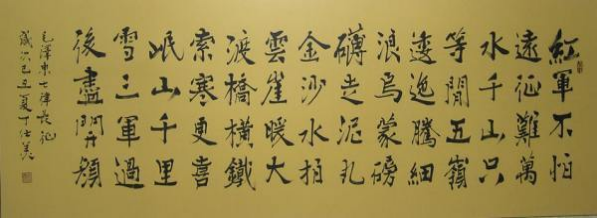 紅軍不怕
遠征難萬
水千山只
等閒五嶺
逶迤騰細
浪烏蒙磅
礴走泥丸
金沙水拍
雲崖暖大
渡橋橫鐵
索寒更喜
岷山千里
雪三軍過
後盡開顏
毛澤東七律長征
歲次己丑夏丁仕美